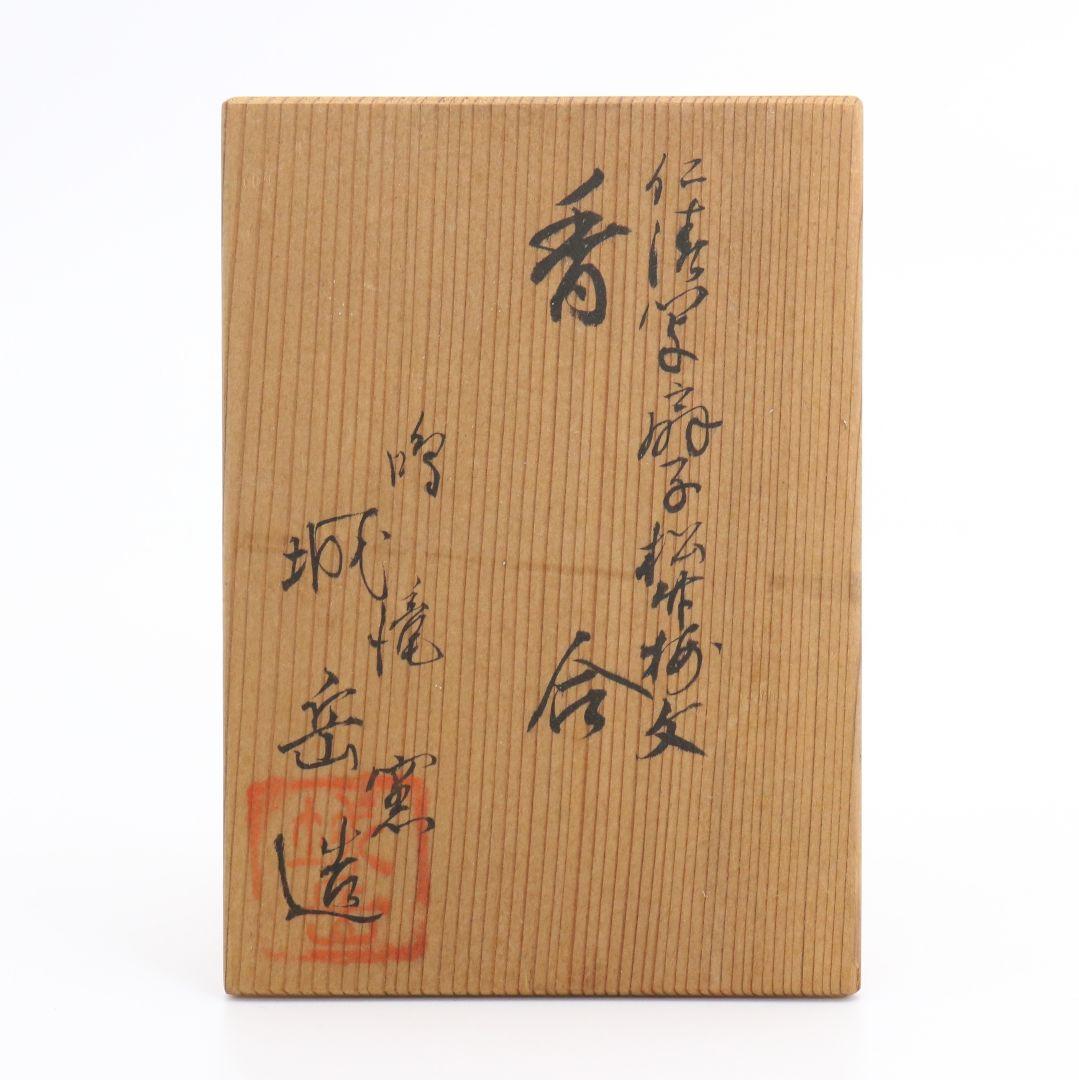 仁清写扇子松竹梅文
香合
鳴滝窯
城岳造